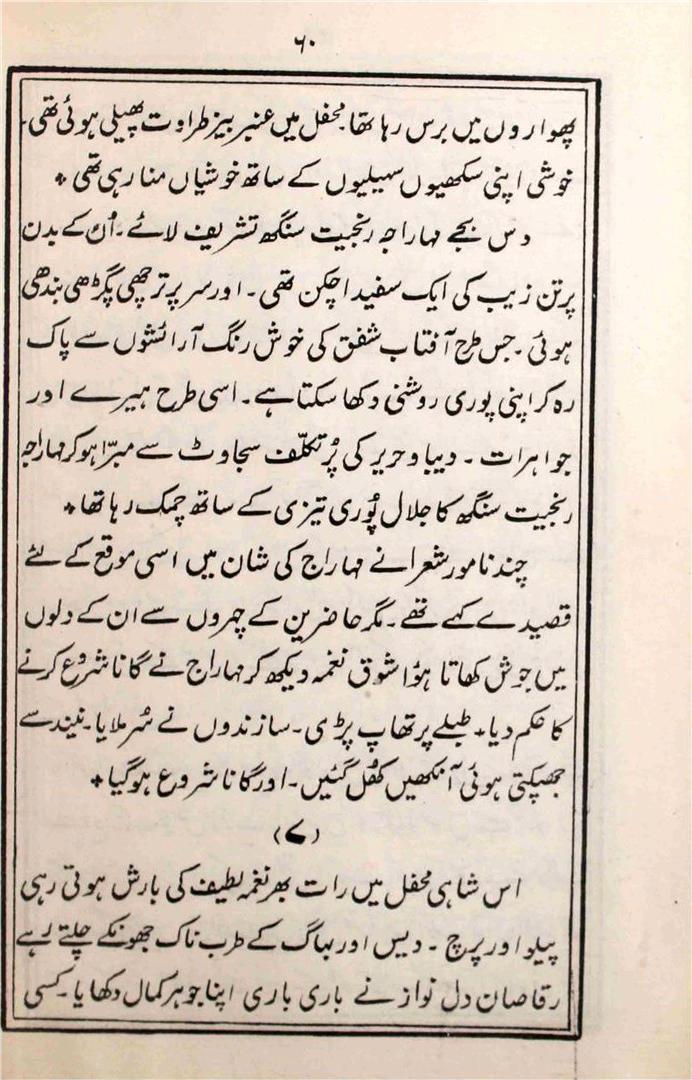 ۶۰
پھواروں میں برس رہا تھا۔ محفل میں عنبر بیز طراوت پھیلی ہوئی تھی۔
خوشی اپنی سکھیوں سہیلیوں کے ساتھ خوشیاں منا رہی تھی *
دس بجے مہاراجہ رنجیت سنگھ تشریف لائے۔ اُن کے بدن
پر تن زیب کی ایک سفید اچکن تھی۔ اور سر پر ترچھی پگڑھی بندھی
ہوئی۔ جس طرح آفتاب شفق کی خوش رنگ آرائشوں سے پاک
رہ کر اپنی پوری روشنی دکھا سکتا ہے۔ اسی طرح ہیرے اور
جواہرات۔ دیبا و حریر کی پُر تکلّف سجاوٹ سے مبرّا ہو کر مہاراجہ
رنجیت سنگھ کا جلال پُوری تیزی کے ساتھ چمک رہا تھا *
چند نامور شعرا نے مہاراج کی شان میں اسی موقع کے لئے
قصیدے کہے تھے۔ مگر حاضرین کے چہروں سے ان کے دلوں
میں جوش کھاتا ہؤا شوق نغمہ دیکھ کر مہاراج نے گانا شروع کرنے
کا حکم دیا * طبلے پر تھاپ پڑی۔ سازندوں نے سُر ملایا۔ نیند سے
جھپکتی ہوئی آنکھیں کھُل گئیں۔ اور گانا شروع ہو گیا *
(۷)
اس شاہی محفل میں رات بھر نغمہ لطیف کی بارش ہوتی رہی
پیلو اور پرچ۔ دیس اور بہاگ کے طرب ناک جھونکے چلتے رہے
رقاصان دل نواز نے باری باری اپنا جوہر کمال دکھایا۔ کسی